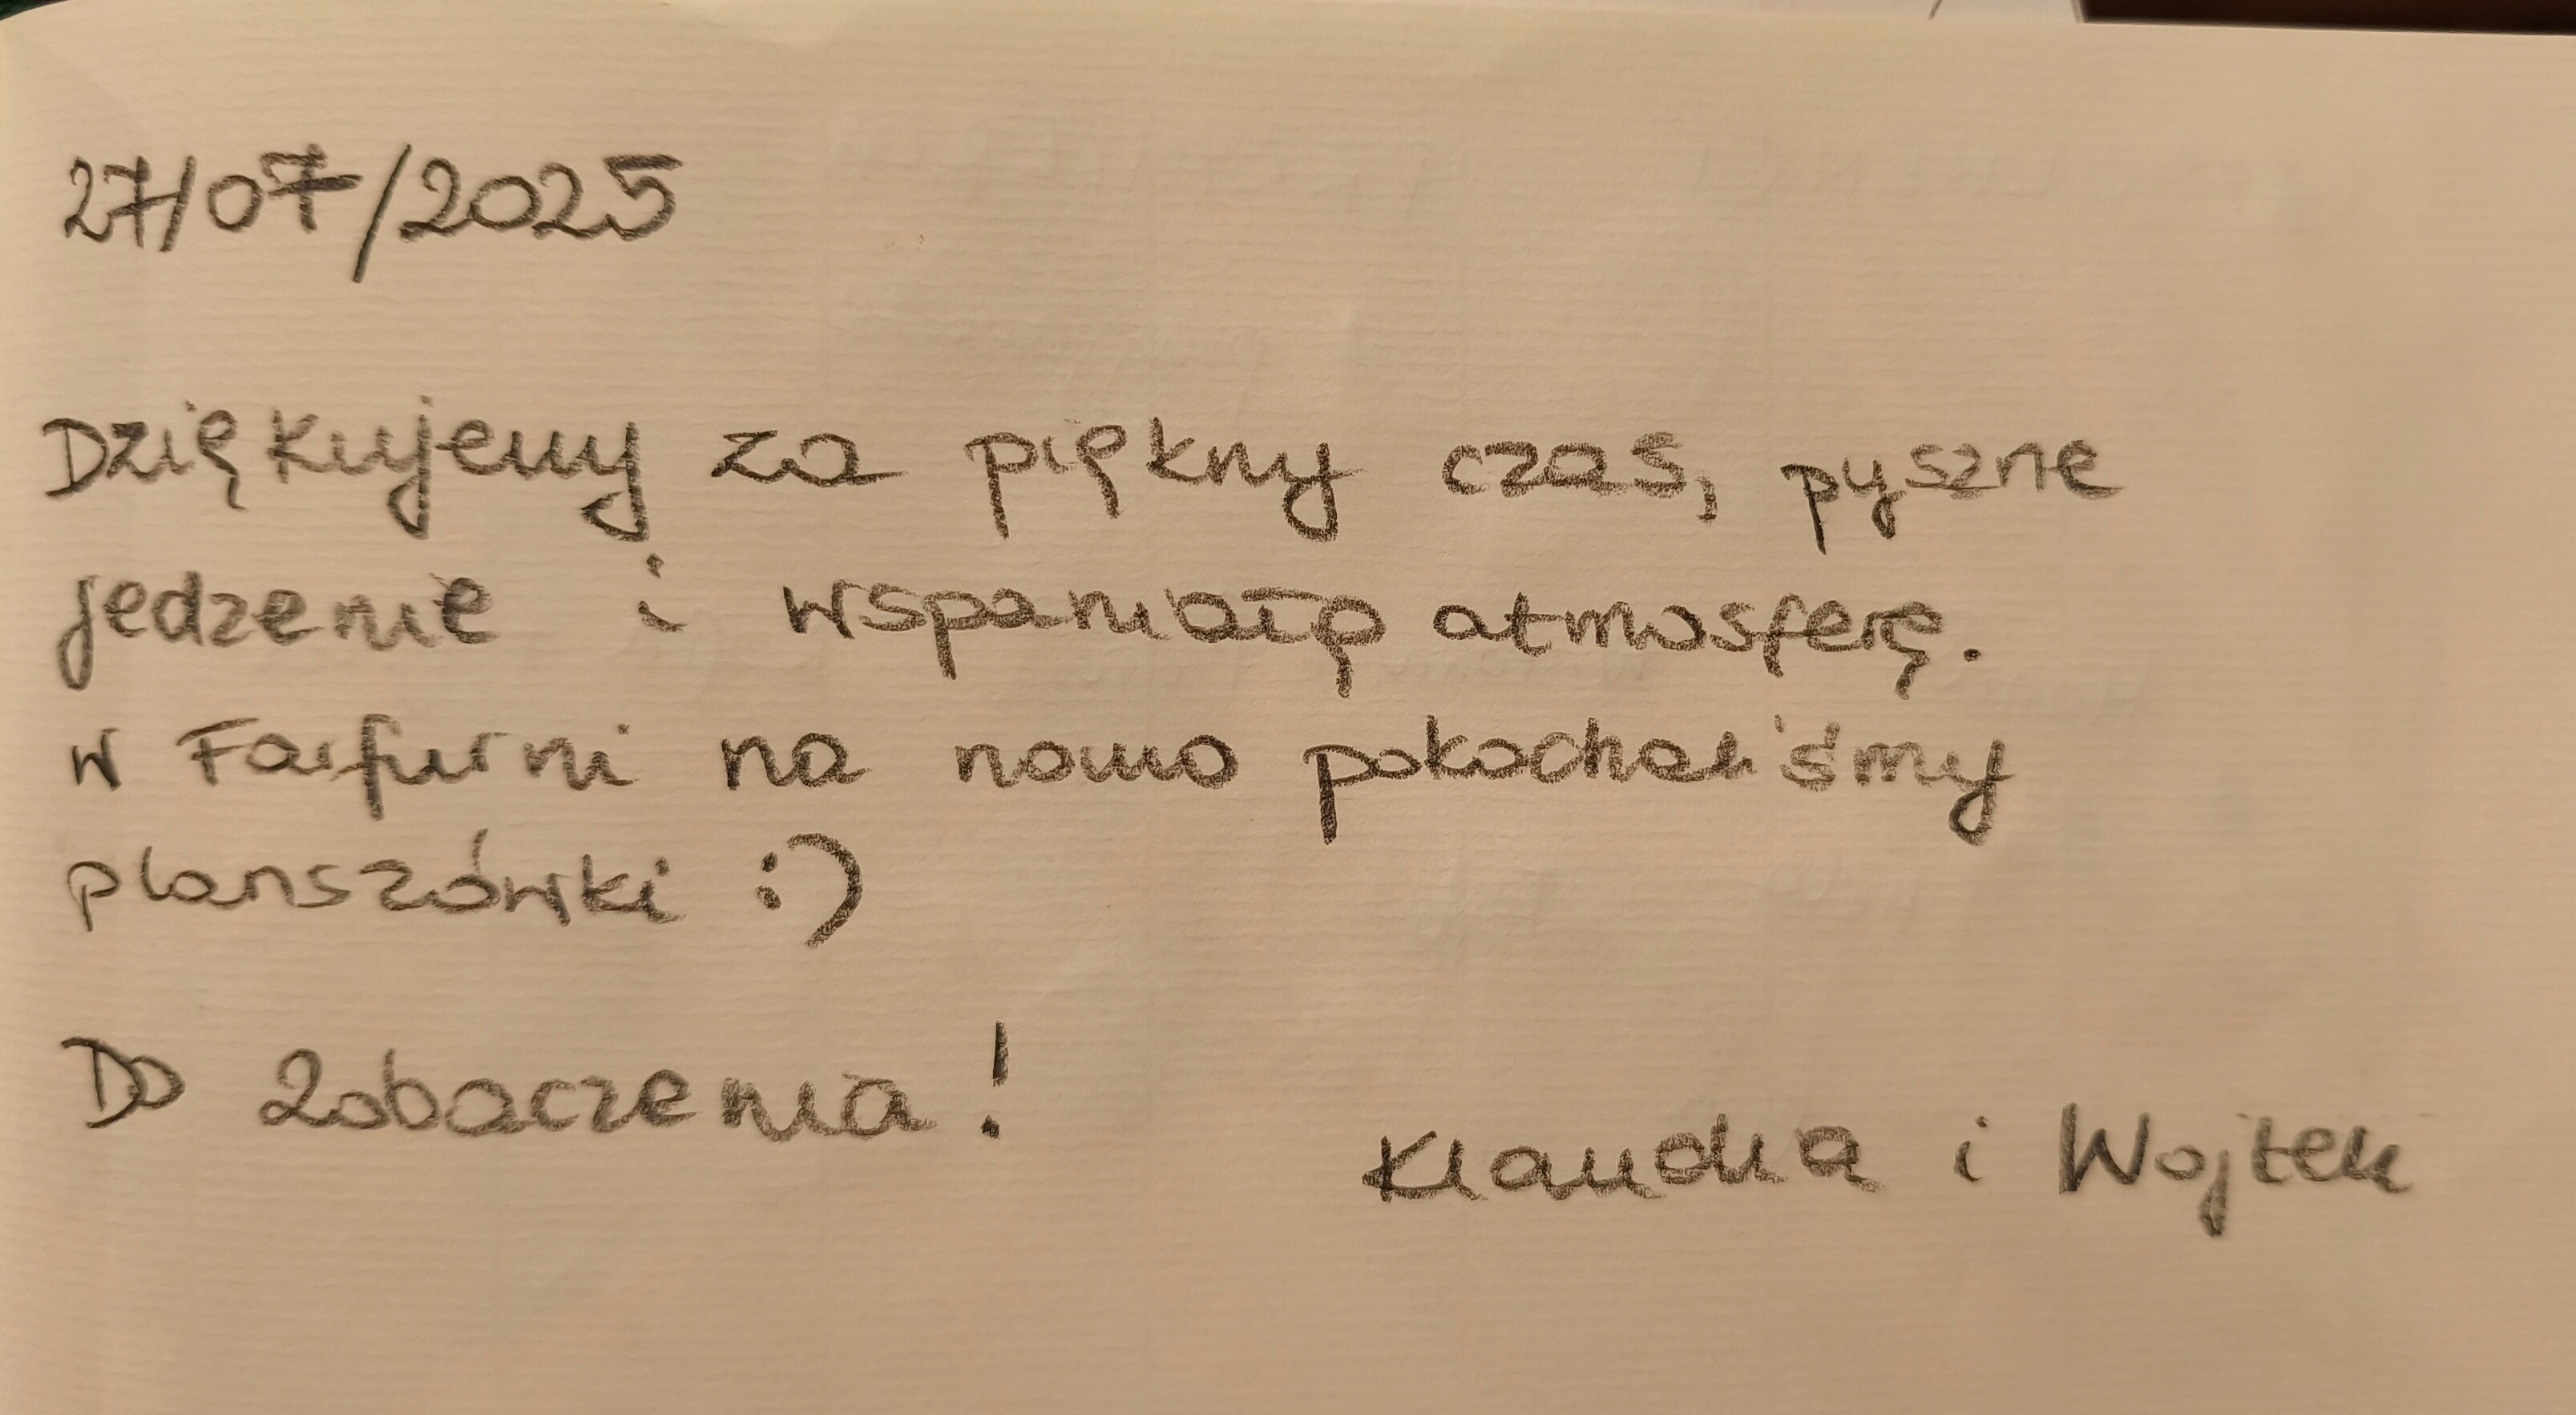 27/07/2025
Dziękujemy za piękny czas, pyszne
jedzenie i wspaniałą atmosferę.
w Farfurni na nowo pokochaliśmy
planszówki :)
Do zobaczenia!
Klaudia i Wojtek